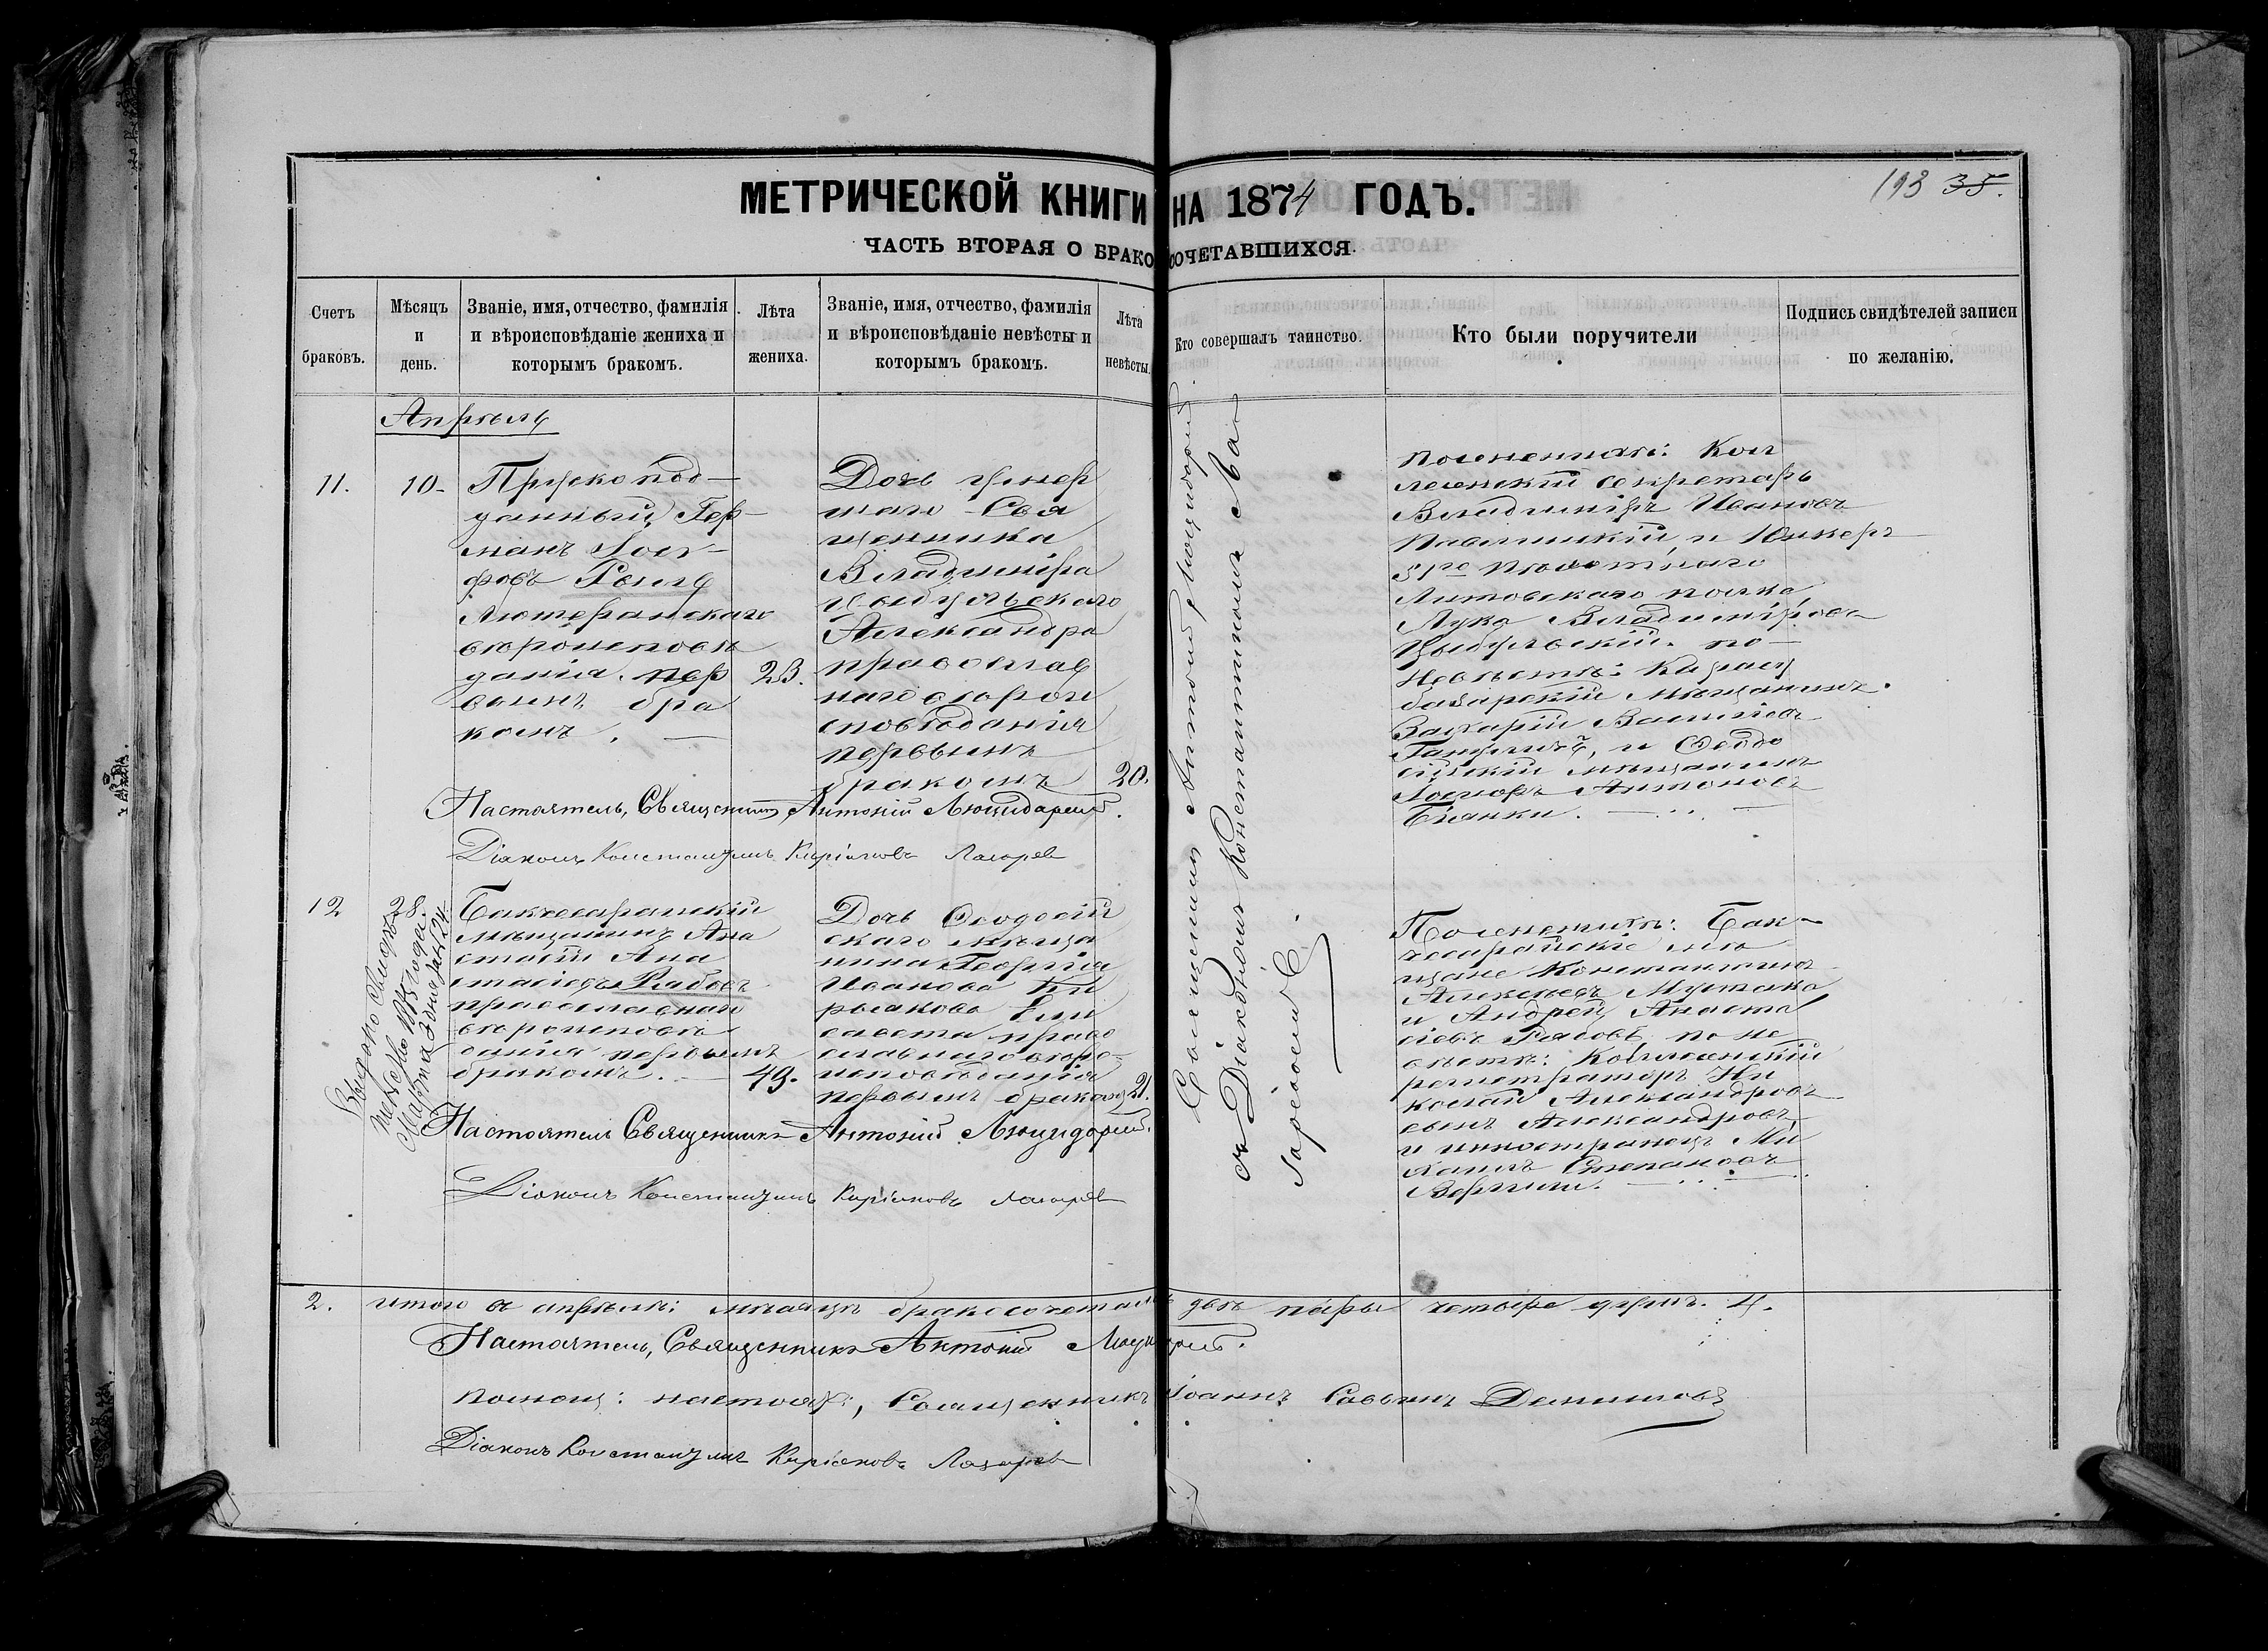 193 35.
МЕТРИЧЕСКОЙ КНИГИ НА 1874 ГОДЪ.
ЧАСТЬ ВТОРАЯ О БРАКОСОЧЕТАВШИХСЯ.
Счетъ браковъ.
Мѣсяцъ и день.
Званіе, имя, отчество, фамилія и вѣроисповѣданіе жениха и которымъ бракомъ.
Лѣта жениха.
Званіе, имя, отчество, фамилія и вѣроисповѣданіе невѣсты и которымъ бракомъ.
Лѣта невѣсты.
Кто совершалъ таинство.
Кто были поручители
Подпись свидѣтелей записи по желанію.
Апрѣль
11.
10.
Прускопод-
данный, Гер-
манъ Іоси-
фовъ
Лютеранскаго
вѣроисповѣ
данія, пер
вымъ бра
комъ.
23.
Дочь умер
шаго Свя
щенника
Владиміра
Цыбульскаго
Александра
православ
наго вѣрои
сповѣданія
первымъ
бракомъ
20.
Священникъ Антоній
съ Діакономъ Константиномъ Ла-
заревымъ.
По женихѣ: Кол
лежскій секретарь
Владиміръ Ивановъ
Павлицкій, и Юнкеръ
5го пѣхотнаго
Литовскаго полка,
Лука Владиміровъ
Цыбульскій. по
невѣстѣ: Карасу
базарскій мѣщанинъ
Захарій Васильевъ
и Ѳеодо
сійскій мѣщанинъ
Іосифъ Антоновъ
Біянки.
Настоятель, Священникъ Антоній
Діаконъ Константинъ Киріаковъ Лазарев
12
28.
Выдано свидѣ
тельство 1885 года
Марта 2 дня за № 24
Бахчесарайскій
мѣщанинъ Ана
стасій Ана
стасіевъ Рябовъ
православнаго
вѣроисповѣ
данія первымъ
бракомъ.
49.
Дочь Ѳеодосій
скаго мѣща
нина Георгія
Иванова Ки
рьякова Ели
савета право
славнаго вѣро-
исповѣданія
первымъ бракомъ
21.
По женихѣ: Бах-
чесарайскіе мѣ
щане Константинъ
Алексѣевъ
и Андрей Анаста
сіевъ Рябовъ. по не
вѣстѣ: Коллежскій
регистраторъ Ни
колай Александровъ
сынъ Александровъ,
и иностранецъ Ми
хаилъ Степановъ
Настоятель Священникъ Антоній
Діаконъ Константинъ Киріаковъ Лазарев
2. итого въ апрѣлѣ: мѣсяцѣ бракосочеталось двѣ пары четыре души. 4.
Настоятель, Священникъ Антоній
помощ: настоят:, Священникъ Іоаннъ Саввинъ Данилов
Діаконъ Константинъ Киріаковъ Лазарев